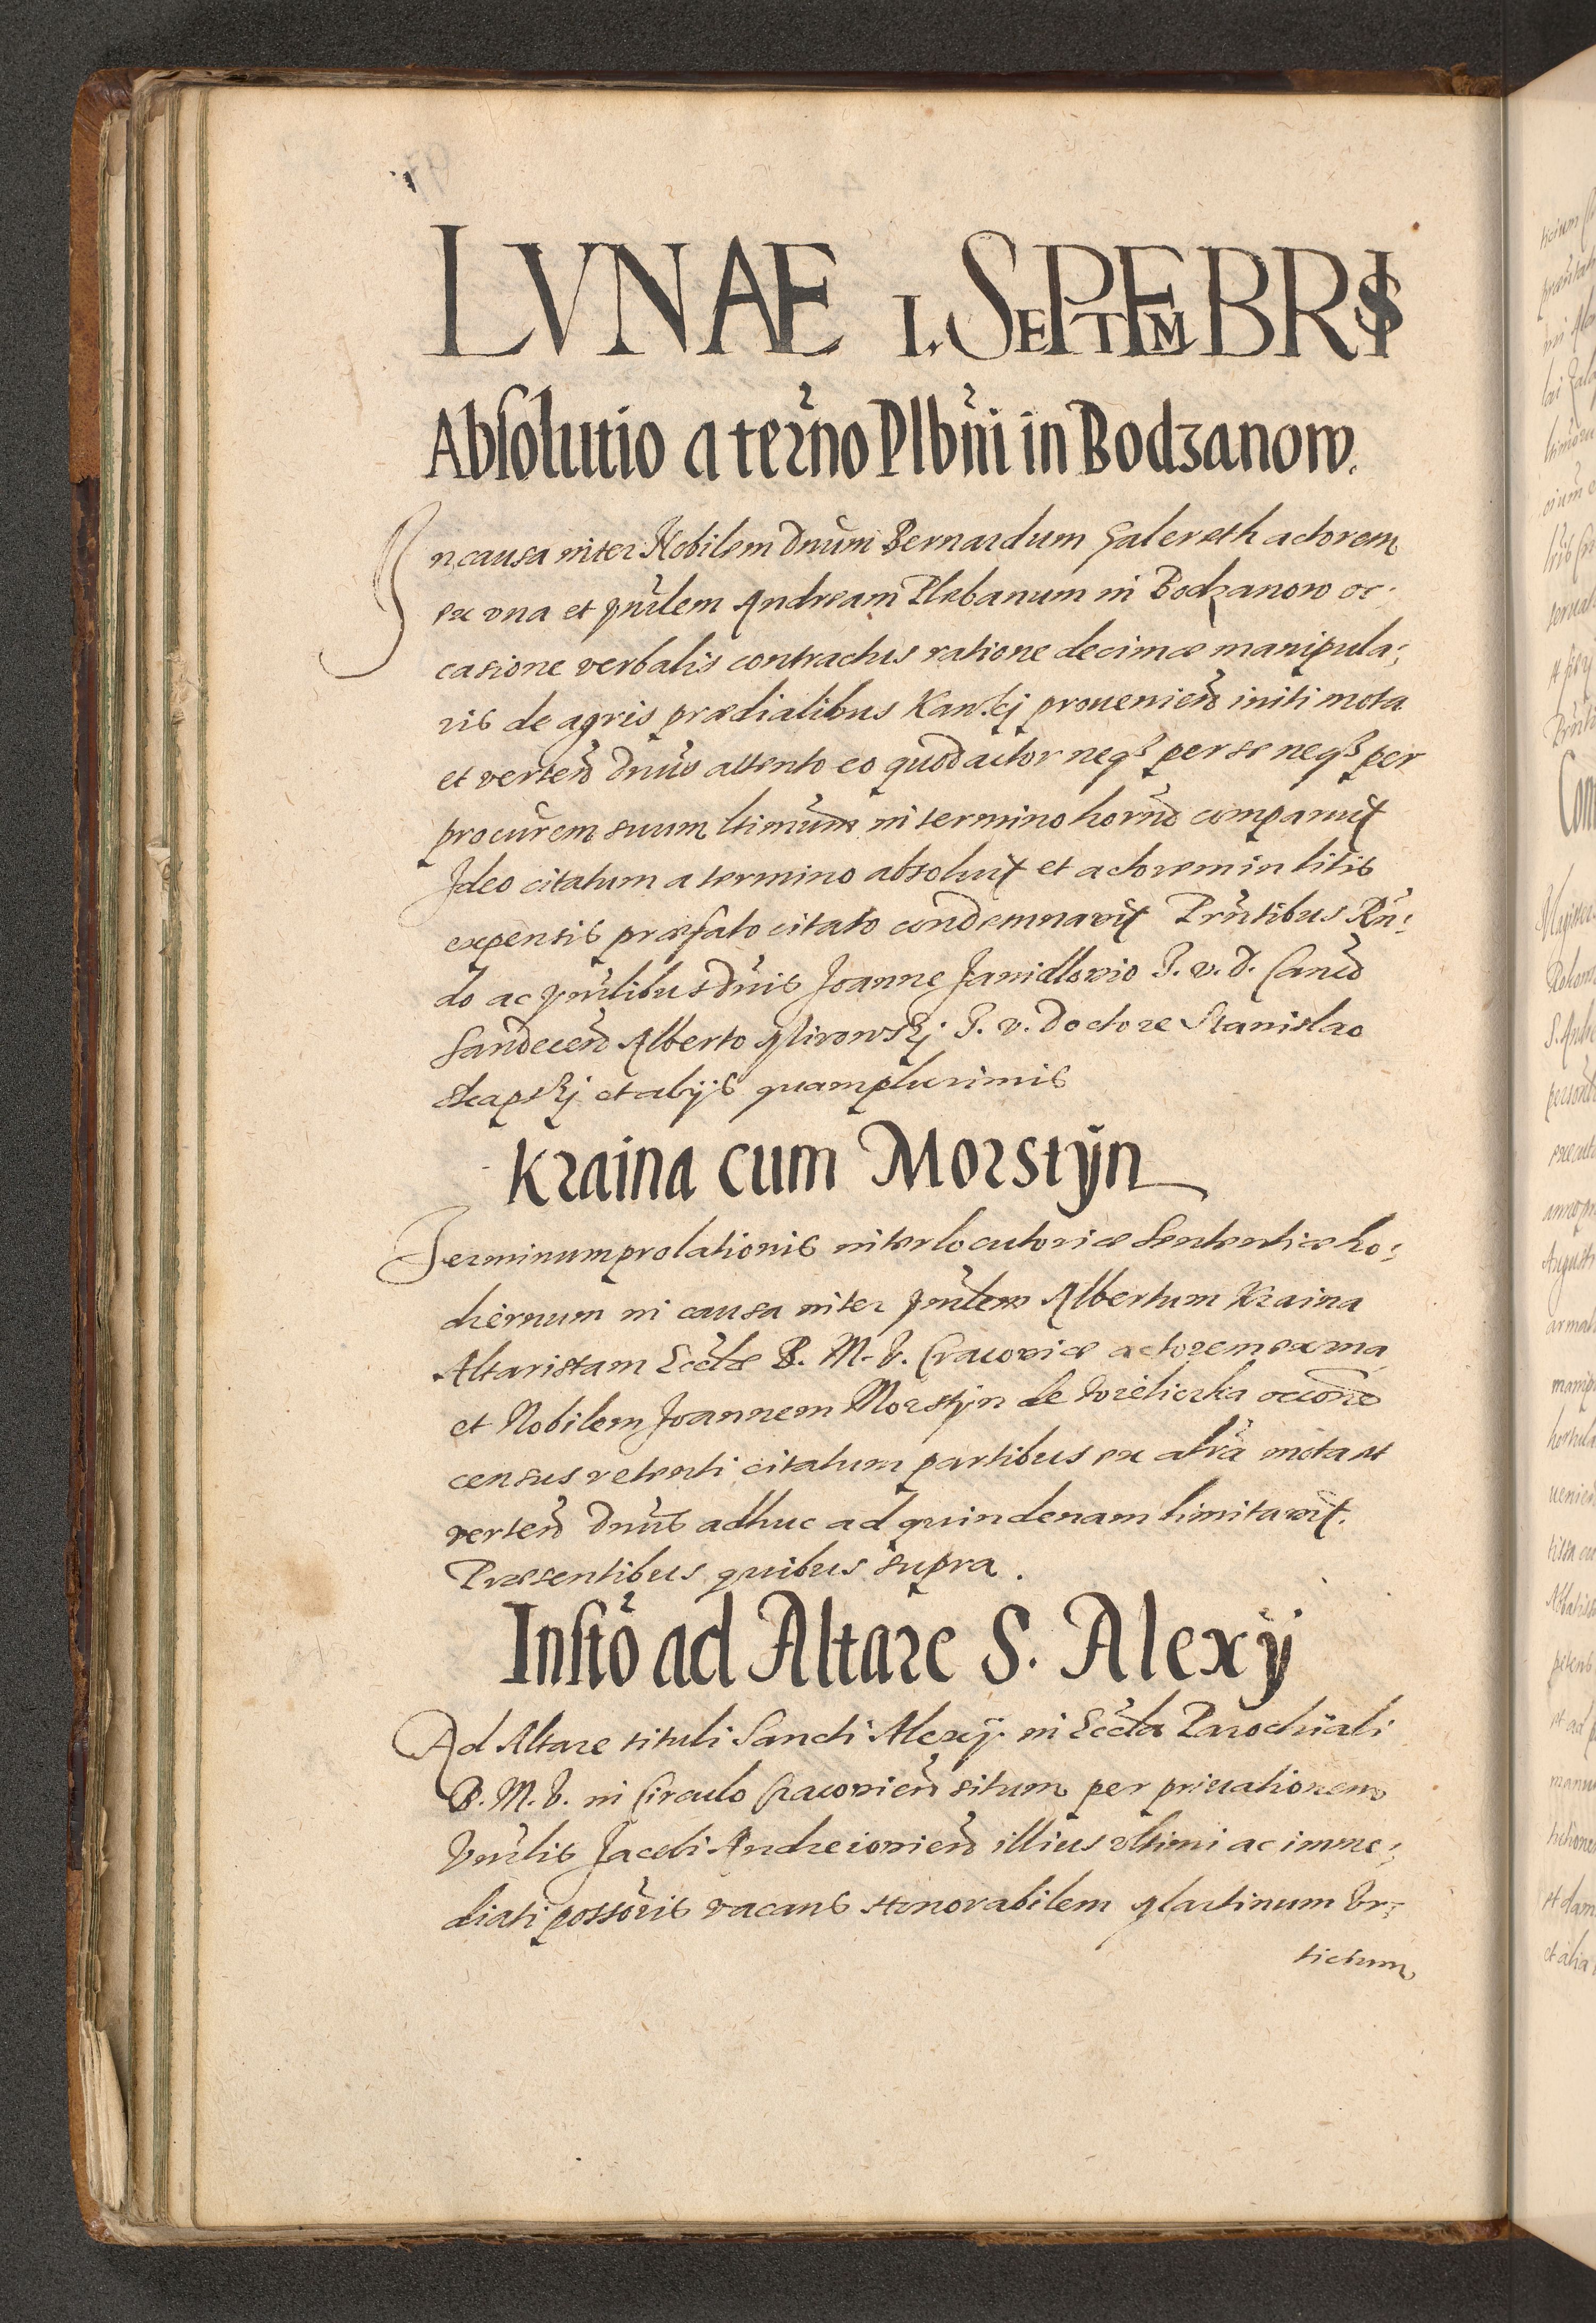 LVNAE 1. SEPTEMBRIS
Absolutio a terno Plbni in Bodzanow.
In causa inter Nobilem Dnum Bernardum Galereth actorem
ex vna et Vnrlem Andream Plebanum in Bodzanow oc:
casione verbalis contractus ratione decimæ manipula:
ris de agris prædialibus prouenien initi mota
et verten Dnus attento eo quod actor neq3 per se neq3 per
procurem suum ltimum in termino horno comparuit
Ideo citatum a termino absoluit et actorem in litis
expensis præfato citato condemnavit Prntibus Rn:
do ac Vnrlibus Dnis Joanne Januidlovio J. v. d. Canco
Sandecen Alberto J. v. Doctore Stanislao
Skapski et alijs quamplurimis
Kraina cum Morstÿn
Terminum prolationis interlocutoriæ Sententiæ ho:
diernum in causa inter Vnrlem Albertum Kraina
Altaristam Eccle B. M. V. Cracoviæ actorem ex vna
et Nobilem Joannem Morstÿn de Wieliczka occone
census retenti citatum partibus ex altra mota et
verten Dnus adhuc ad quindenam limitavit.
Præsentibus quibus supra.
Insto ad Altare S. Alexÿ
Ad Altare tituli Sancti Alexÿ in Eccla Parochiali
B. M. V. in Circulo Cracovien situm per priuationem
Vnrlis Jacobi Andreiovien illius vltimi ac imme:
diati possoris vacans Honorabilem Martinum Vr:
tictum